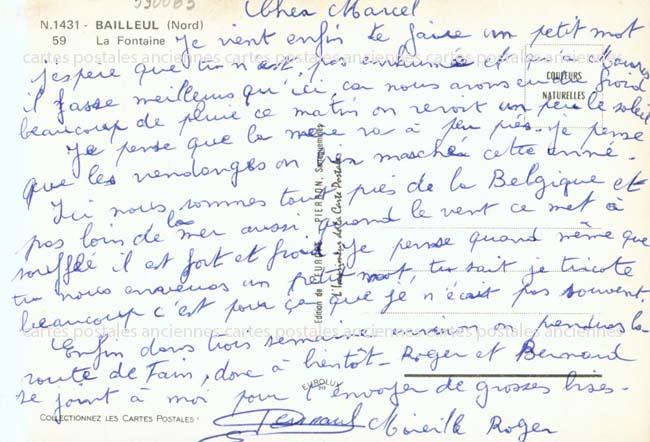 590063
N.1431 - BAILLEUL (Nord)
59 La Fontaine
Cher Marcel
Je vient enfin te faire un petit mot
j'espère que tu n'est pas enrhumée et
il fasse meilleurs qu'ici, car nous avons eu du froid
beaucoup de pluie ce matin on revoit un peu le soleil
Je pense que la mère va à peu près. je pense
que les vendanges on bien marchés cette anné.
Ici nous sommes tout près de la Belgique et
pas loin de la mer aussi quand le vent ce met à
soufflé il est fort et froid. Je pense quand même que
tu nous enverras un petit mot, tu sait je tricote
beaucoup c'est pour ça que je n'écrit pas souvent.
Enfin dans trois semaine environ on prendras la
route de Fain, donc à bientôt - Roger et Bernard
se joint à moi pour t'envoyer de grosses bises.
Mireille Roger
COULEURS
NATURELLES
Edition de l'EUROPE PIERRON, Sarreguemines
L'Imprimeur de la Carte Postale
EUROLUX
COLLECTIONNEZ LES CARTES POSTALES
cartes postales anciennes cartes postales anciennes cartes postales anciennes
cartes postales anciennes cartes postales anciennes cartes postales anciennes